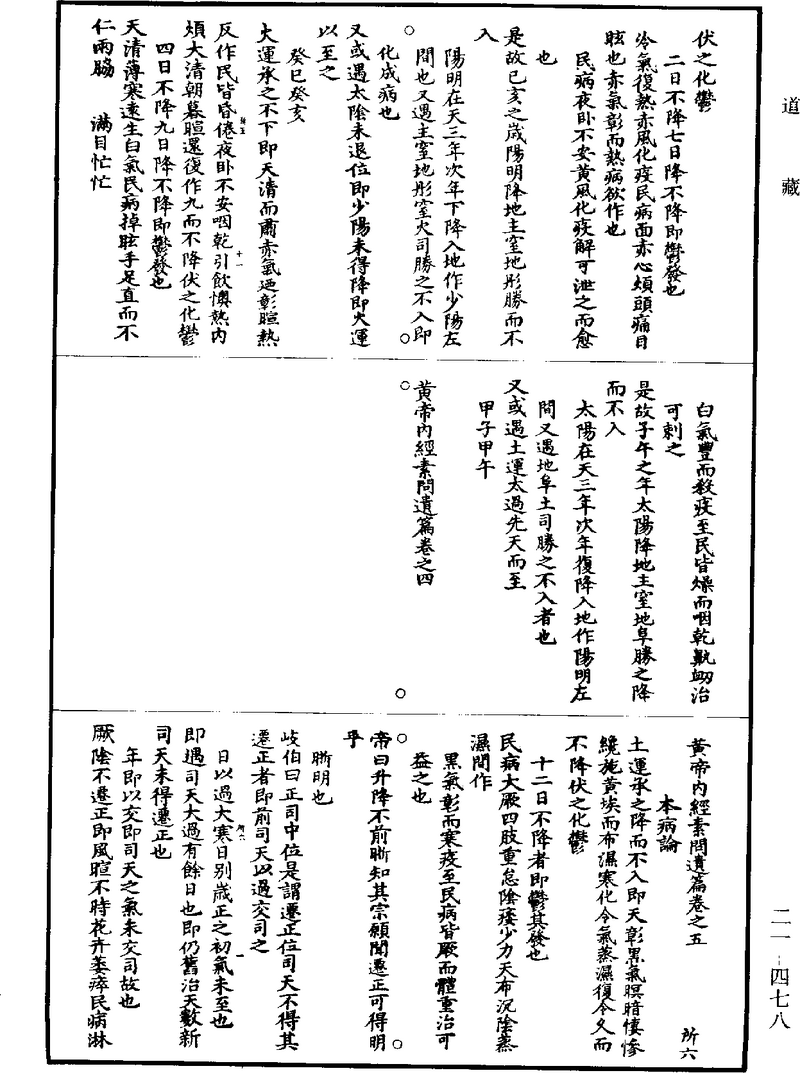 道藏
伏之化鬱
二日不降七日降不降即鬱發也
冷氣復熱赤風化疫民病面赤心煩頭痛目
眩也赤氣彰而熱病欲作也
民病夜卧不安黃風化疫解可泄之而愈
也
是故巳亥之歲陽明降地主窒地彤勝而不
入
陽明在天三年次年下降入地作少陽左
間也又遇主窒地彤室火司勝之不入即
化成病也
又或遇太陰未退位即少陽未得降即火運
以至之
癸巳癸亥
火運承之不下即天清而肅赤氣迺彰暄熱
反作民皆昏倦夜卧不安咽乾引飲懊熱內
煩大清朝暮暄還復作九而不降伏之化鬱
四日不降九日降不降即鬱發也
天清薄寒遠生白氣民病掉眩手足直而不
仁兩脇 滿目忙忙
白氣豐而殺疫至民皆燥而咽乾鼽衂治
可刺之
是故子午之年太陽降地主窒地阜勝之降
而不入
太陽在天三年次年復降入地作陽明左
間又遇地阜土司勝之不入者也
又或遇土運太過先天而至
甲子甲午
黃帝內經素問遺篇卷之四
黃帝內經素問遺篇卷之五
所六
本病論
土運承之降而不入即天彰黑氣暝暗悽慘
纔施黃埃而布濕寒化令氣蒸濕復令久而
不降伏之化鬱
十二日不降者即鬱其發也
民病大厥四肢重怠陰痿少力天布沉陰蒸
濕間作
黑氣彰而寒疫至民病皆厥而體重治可
益之也
帝曰升降不前晣知其宗願聞遷正可得明
乎
晣明也
岐伯曰正司中位是謂遷正位司天不得其
遷正者即前司天以過交司之
日以過大寒日別歲正之初氣未至也
即遇司天大過有餘日也即仍舊治天數新
司天未得遷正也
年即以交即司天之氣未交司故也
厥陰不遷正即風暄不時花卉萎瘁民病淋
二一-四七八